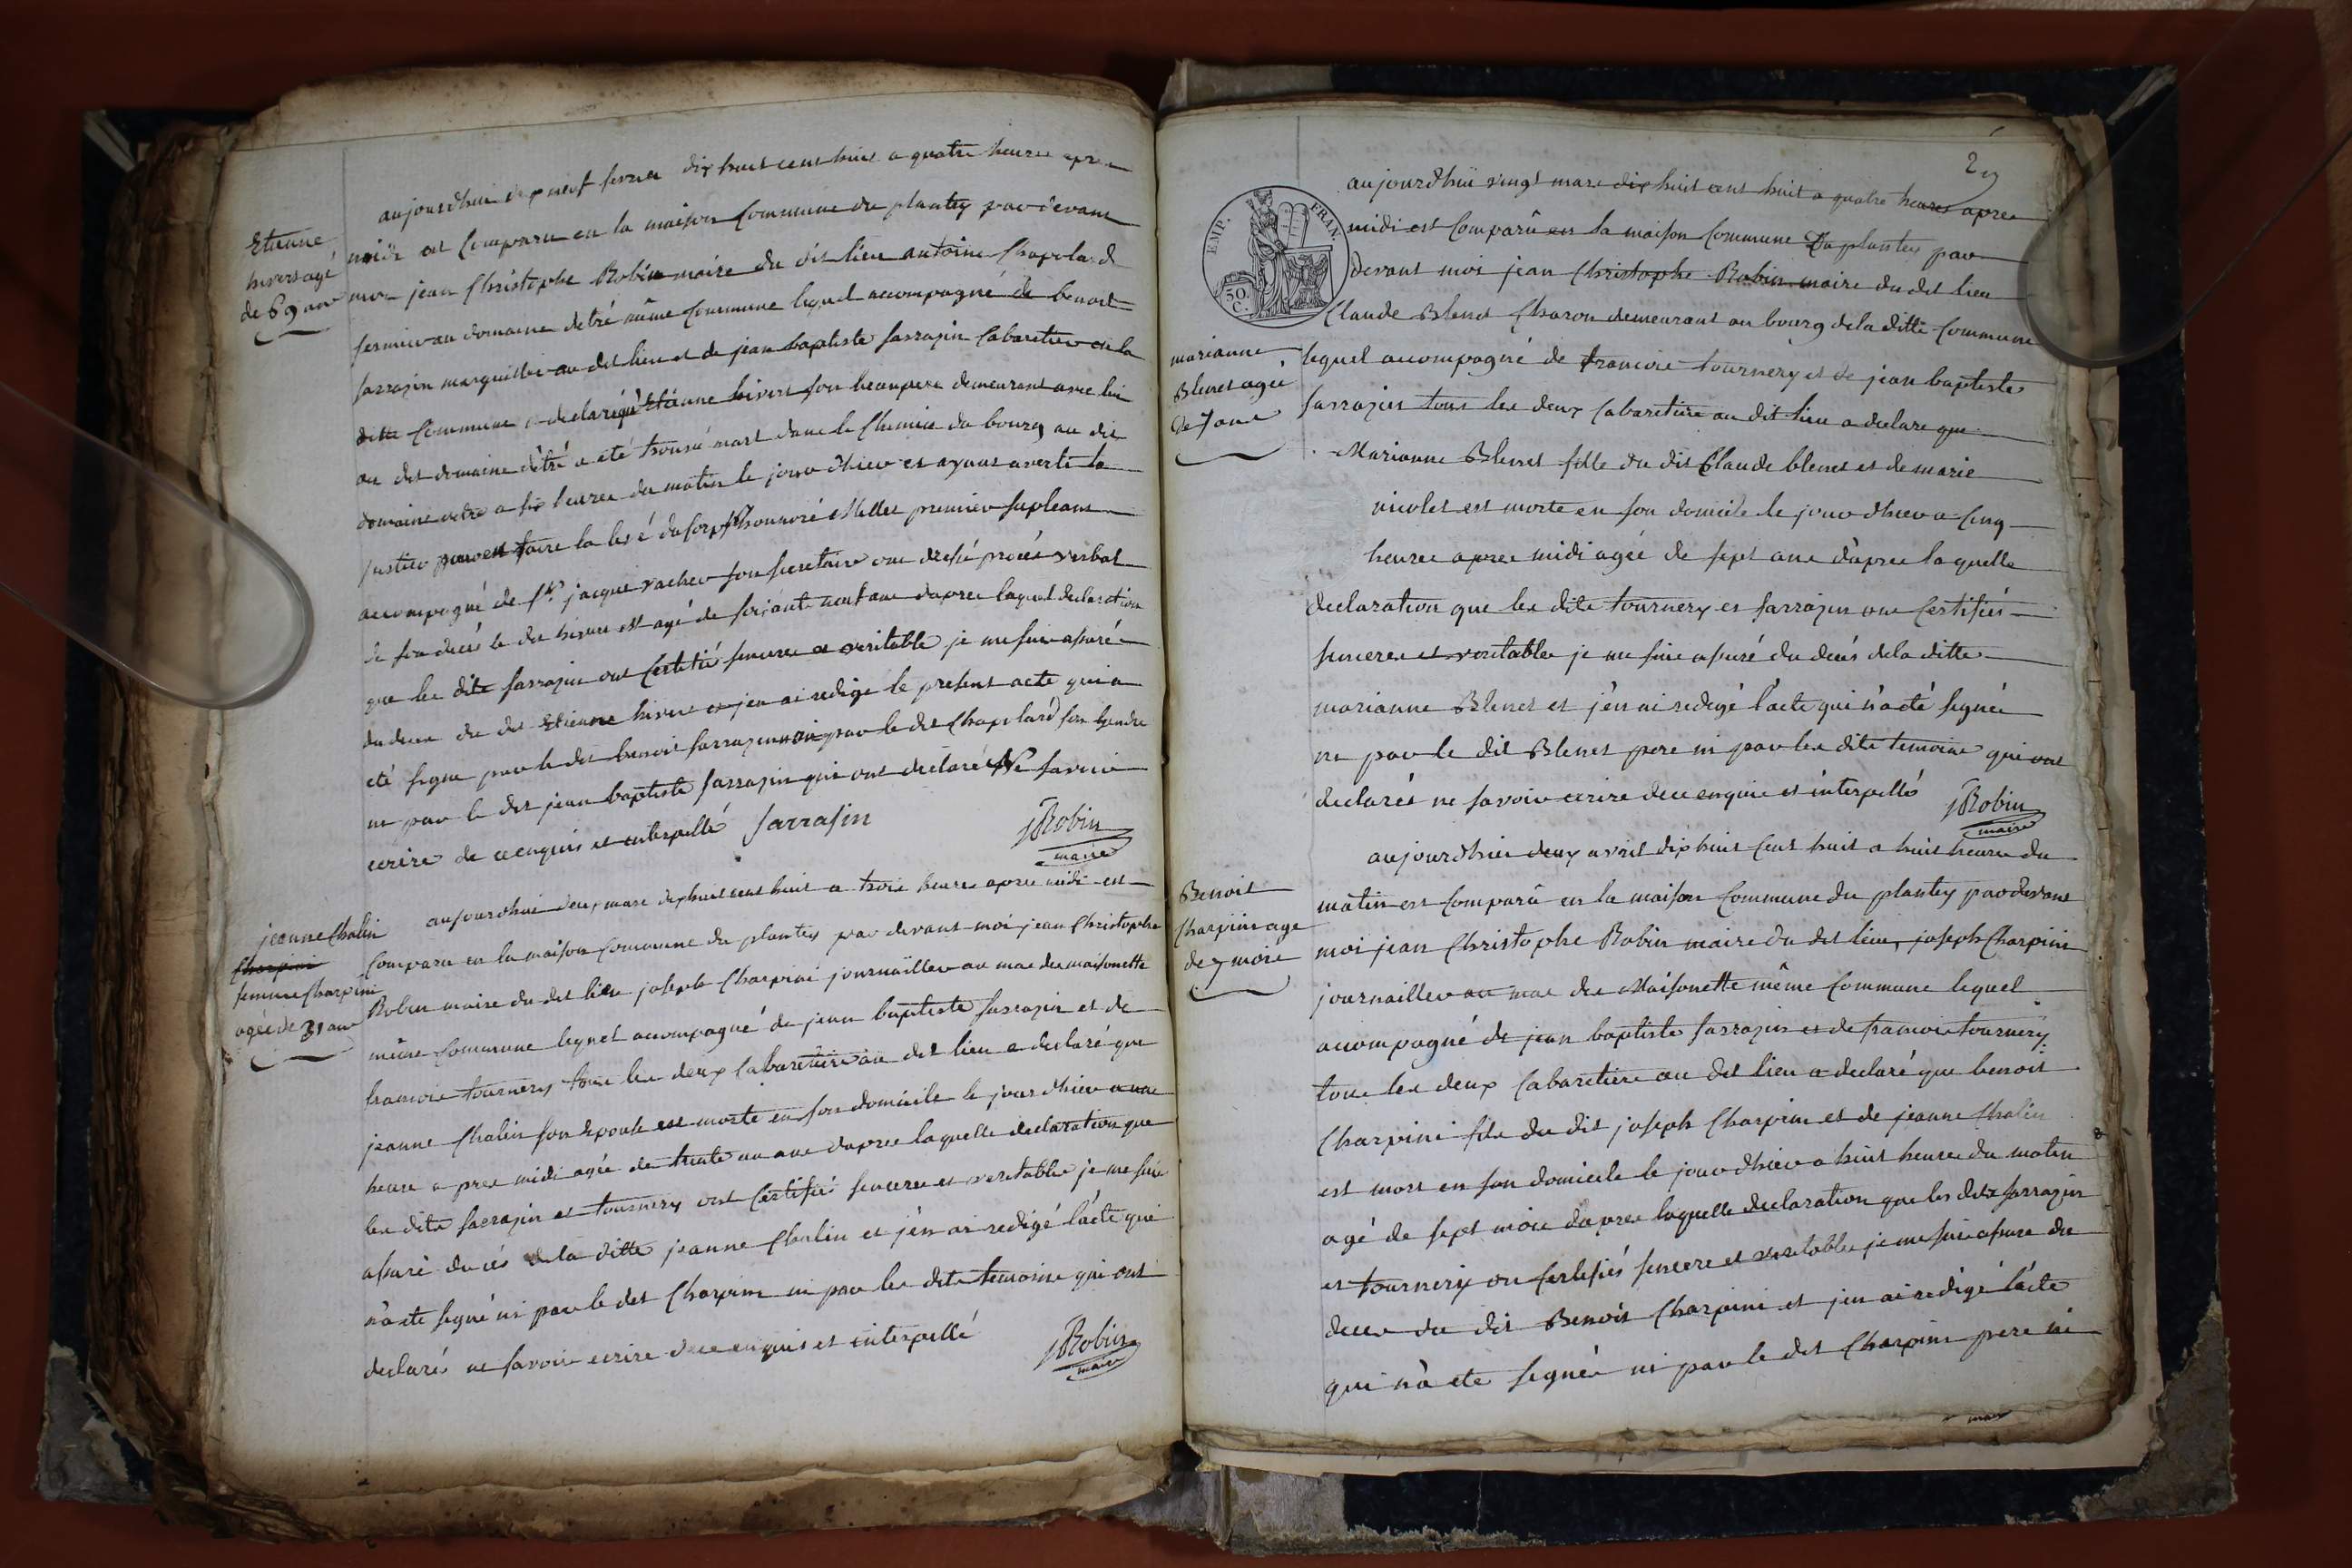 Etienne
hivers agé
de 69 ans
aujourdhui dix neuf fevrier dix huit cens huit a quatre heures apres
midi est comparu en la maison commune du plantey par devant
moi jean Christophe Robin maire du dit lieu antoine Chapelard
fermier au domaine detré même commune lequel accompagné de benoit
sarrazin marguillier au dit lieu et de jean baptiste sarrazin cabaretier en la
ditte commune a declaré qu'Etienne hivers son beaupere demeurant avec lui
au dit domaine détré a eté trouvé mort dans le chemin du bourg au dit
domaine a six heures du matin le jour dhier et ayant averti la
justice pour en faire la levé du corps honnoré Millet premier supleant
accompagné de Sr. jacque vacher son secretaire ont dressé procés verbal
de son decés le dit hivers est agé de soixante neuf ans dapres laquel declaration
que les dits sarrazin ont certifié sincere et veritable je me suis assuré
du deces du dit Etienne hivers et jen ai redigé le present acte qui a
eté signé par le dit benoit sarrazin non par le dit Chapelard son gendre
ni par le dit jean baptiste sarrazin qui ont declaré Ne savoir
ecrire de ce enquis et interpellé sarrasin
JRobin
maire
jeanne Chalin
Charpini
femme Charpini
agée de 31 ans
aujourdhui deux mars dix huit cens huit a trois heures apres midi est
comparu en la maison commune du plantey par devant moi jean Christophe
Robin maire du dit lieu joseph Charpini journaillier au mas des maisonette
même commune lequel accompagné de jean baptiste sarrazin et de
francois tournery tous les deux cabaretiers au dit lieu a declaré que
jeanne Chalin son Epouse est morte en son domicile le jour dhier a une
heure apres midi agée de trente un ans dapres laquelle declaration que
les dits sarrazin et tournery ont certifié sincere et veritable je me suis
assuré du décés de la ditte jeanne Chalin et jen ai redigé l'acte qui
n'a eté signé ni par le dit Charpini ni par les dits temoins qui ont
declaré ne savoir ecrire de ce enquis et interpellé
JRobin
maire
EMP. FRAN.
50.
C.
aujourdhui vingt mars dix huit cens huit a quatre heures apres
midi est comparû en la maison commune du plantey par
devant moi jean Christophe Robin maire du dit lieu
Claude Blenet Charon demeurant au bourg de la ditte commune
marianne
Blenet agée
de 7 ans
lequel accompagné de francois tournery et de jean baptiste
sarrazin tous les deux cabaretiers au dit lieu a declare que
Marianne Blenet fille du dit Claude blenet et de marie
nicolet est morte en son domicile le jour dhier a cinq
heures apres midi agée de sept ans d'apres laquelle
declaration que les dits tournery et sarrazin ont certifiés
sincere et veritable je me suis assuré du decés de la ditte
marianne Blenet et j'en ai redigé l'acte qui n'a eté signée
ni par le dit Blenet pere ni par les dits temoins qui ont
declarés ne savoir ecrire de ce enquis et interpellés
JRobin
maire
Benoit
Charpini agé
de 7 mois
aujourdhui deux avril dix huit cens huit a huit heures du
matin est comparû en la maison commune du plantey par devant
moi jean Christophe Robin maire du dit lieu, joseph Charpini
journaillier au mas des Maisonette même commune lequel
accompagné de jean baptiste sarrazin et de francois tournery
tous les deux cabaretiers au dit lieu a declaré que benoit
Charpini fils du dit joseph Charpini et de jeanne Chalin
est mort en son domicile le jour dhier a huit heures du matin
agé de sept mois dapres laquelle declaration que les dits sarrazin
et tournery on certifiés sincere et veritable je me suis assure du
deces du dit Benoit Charpini et jen ai redigé lácte
qui n'á eté signée ni par le dit Charpini pere ni